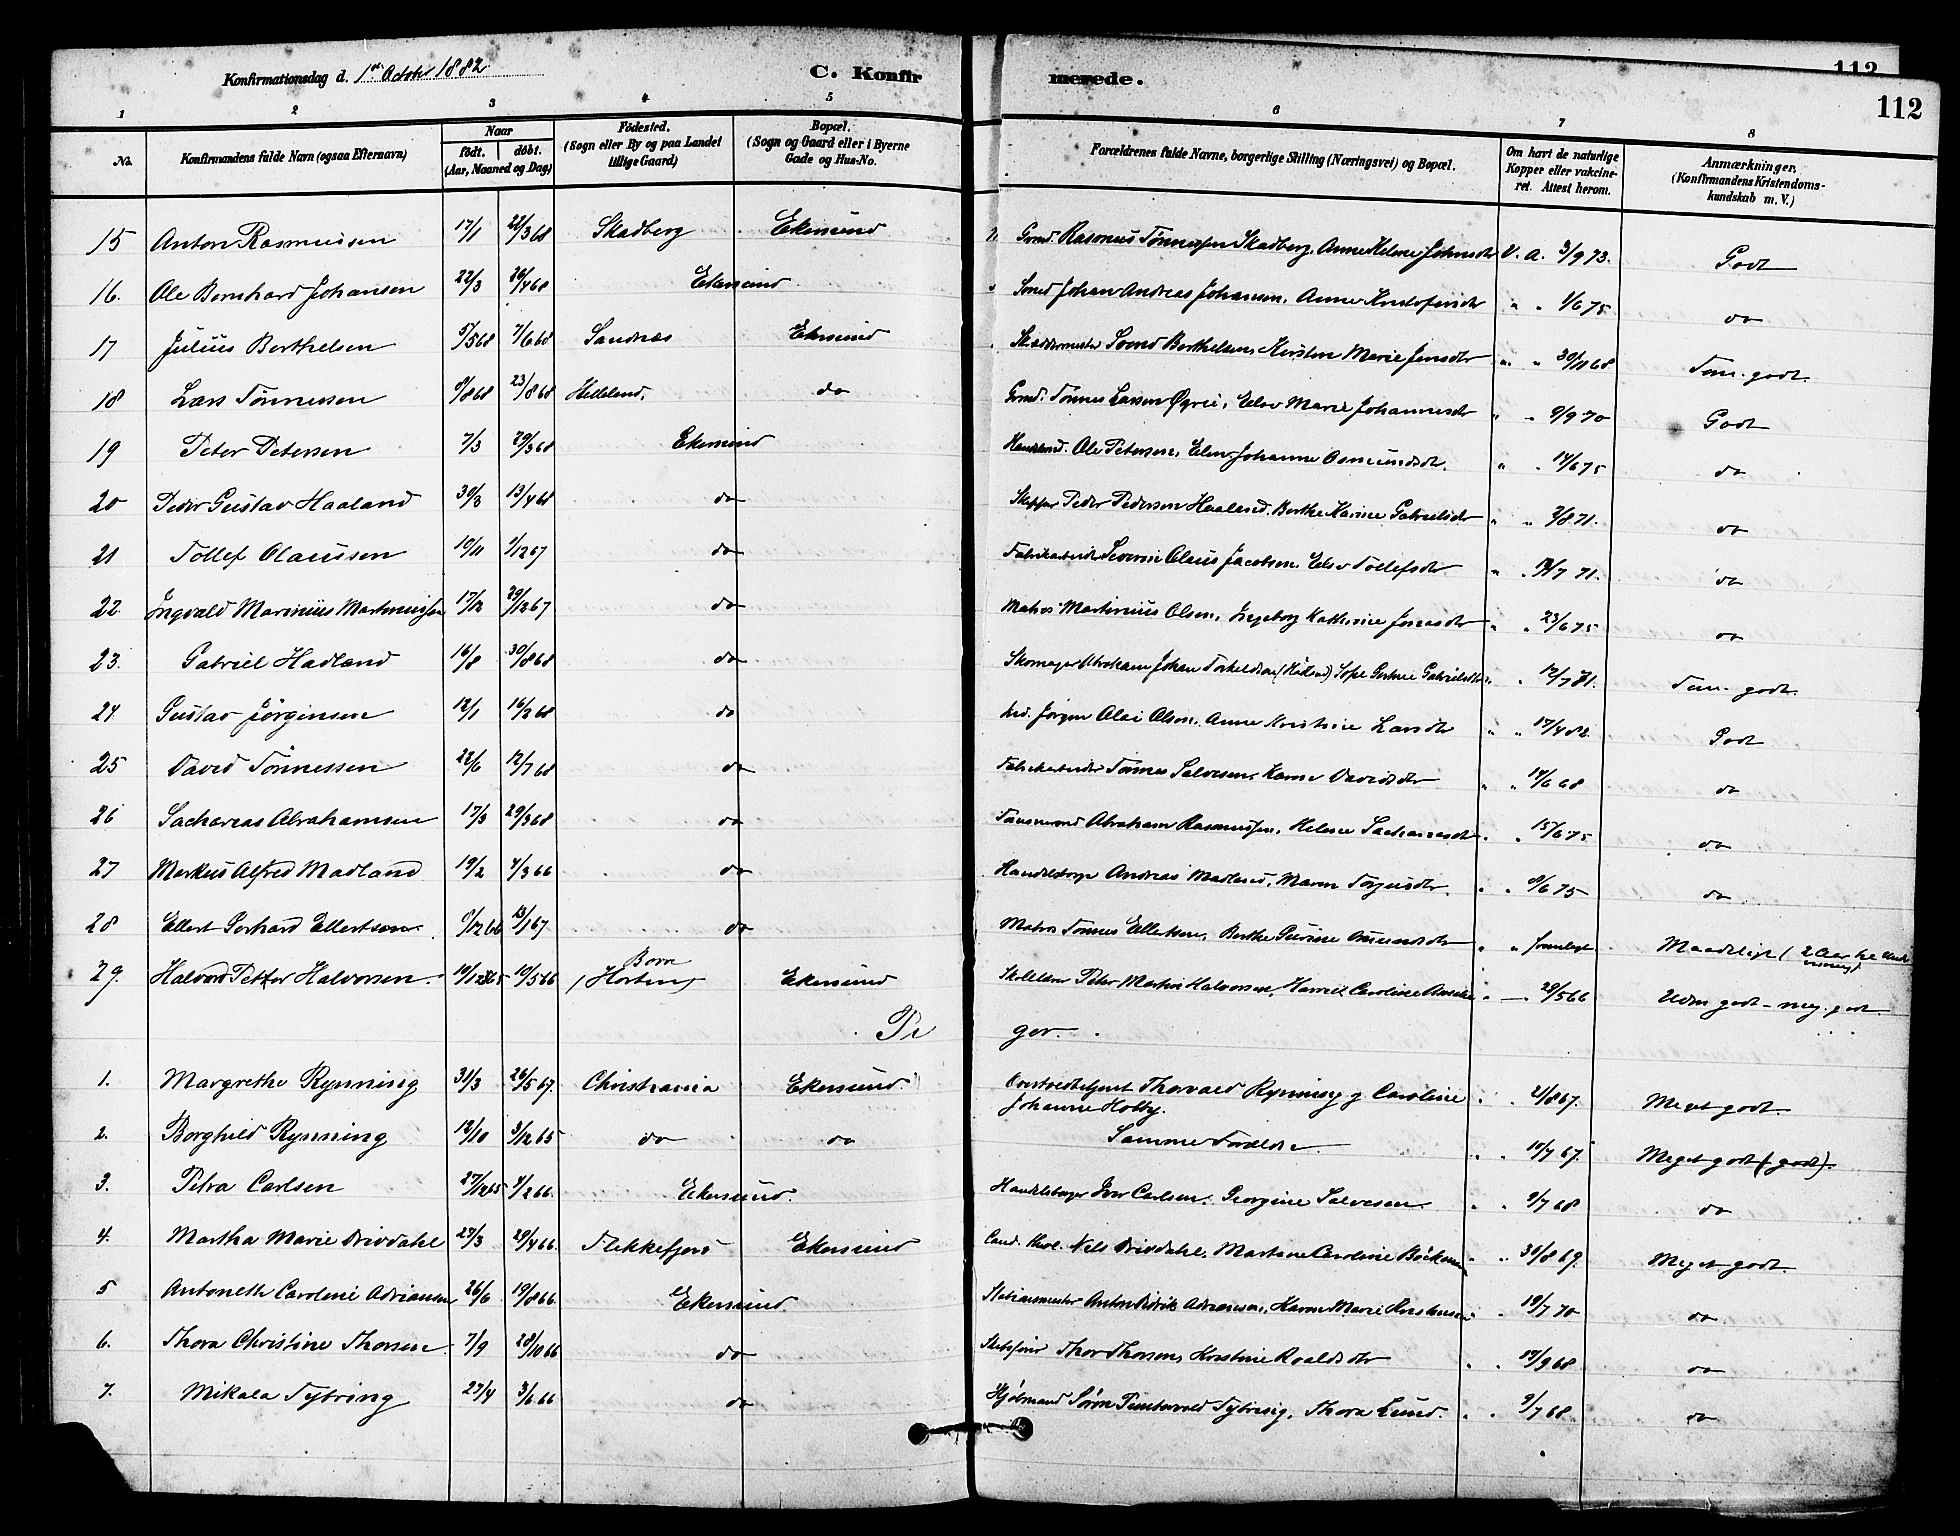 Konfirmationsdag d. 1ste October 1882 C. Konfirmerede.
112
112
1 2 3 4 5 6 7 8
No. Konfirmandens fulde Navn (ogsaa Efternavn) Naar født. døbt. (Aar, Maaned og Dag) Födested. (Sogn eller By og paa Landet tillige Gaard) Bopæl. (Sogn og Gaard eller i Byerne Gade og Hus-No. Forældrenes fulde Navne, borgerlige Stilling (Næringsvei) og Bopæl. Om havt de naturlige Kopper eller vakcineret. Attest herom. Anmærkninger, (Konfirmandens Kristendomskundskab m. V.)
15 Anton Rasmussen 17/1 22/3 68 Skadberg Ekersund Grmd. Rasmus Tønnessen Skadberg, Anne Helene Johnsdtr V. A. 3/9 73. Godt
16. Ole Bernhard Johansen 22/3 26/4 68 Ekersund Smed Johan Andreas Johansen, Anne Kristofersdtr " " 1/6 75 do
17 Julius Berthelsen 5/3 68 7/6 68 Sandnes Ekersund Skræddermester Svend Berthelsen, Kirsten Marie Jensdtr " " 30/11 68 Tem. godt.
18 Lars Tönnessen 9/8 68 23/8 68 Helleland. do Grmd. Tönnes Larsen Øgrei, Elen Marie Johannesdtr " " 9/9 70 Godt
19 Peter Petersen 7/3 29/3 68 Ekersund Ole Petersen, Elen Johanne Osmundsdtr. " " 14/6 75 do
20 Peder Gustav Haaland 30/3 13/4 68 do Skipper Peder Pedersen Haaland, Berthe Karine Gabrielsdtr " " 2/8 71. do
21 Tollef Olaussen 10/11 1/12 67 do Fabrikarbeider Severin Olaus Jacobsen, Elen Tollefsdtr " " 14/7 71. do
22 Ingvald Marinius Martiniussen 17/12 29/12 67 do Matros Martinius Olsen, Ingeborg Kathrine Jonasdtr " " 23/6 75 do
23. Gabriel Hadland 16/8 30/8 68 do Skomager Abraham Johan Torkeldsen (Hadland) Sofie Gabrielsdtr " " 12/7 81. Tem. godt.
24. Gustav Jörgensen 12/1 16/2 68 do Arb. Jørgen Olai Olsen, Anne Kristine Larsdtr " " 17/4 82. Godt
25 David Tönnessen 22/6 12/7 68 do Fabrikarbeider Tönnes Salvesen, Karen Davidsdtr " " 14/6 68 do
26 Sacharias Abrahamsen 17/3 29/3 68 do Abraham Rasmussen, Helene Sachariasdtr " " 15/6 75 do
27 Markus Alfred Madland 19/2 4/3 66 do Handelsborger Andreas Madland, Maren Torjusdtr. " " 9/6 75 do
28 Ellert Gerhard Ellertsen 9/12 66 13/1 67 do Matros Tönnes Ellertsen, Berthe Osmundsdtr " " fremlagt Maadeligt (2 Aar
29. Halvard Petter Halvorsen. 19/12 65 10/5 66 Borre (Horten) Ekersund Skolelærer Peter Martin Halvorsen, Caroline " — 28/5 66 Udm. godt - meg. godt.
Piger.
1. Margrethe Rynning 31/3 26/5 67. Christiania Ekersund Thorvald Rynning og Caroline Johanne Holby. " " 21/8 67. Meget godt
2. Borghild Rynning 12/10 3/12 65 do do Samme Forældre " " 10/7 67. Meget godt (godt).
3. Petra Carlsen 27/12 65 4/2 66. Ekersund. Handelsborger Iver Carlsen, Georgine Salvesen " " 9/7 68 do
4. Martha Marie Drivdahl 27/3 29/4 66. Flekkefjord Ekersund Cand. theol. Nils Drivdahl, Martine Caroline " " 30/8 67. Meget godt.
5 Antonette Caroline Adriansen 26/6 19/8 66. Ekersund. Stationsmester Anton Didrik Adriansen, Karen Marie Kristensen " " 19/7 70 do
6. Thora Christine Thorsen 7/9 28/10 66 do Skibsfører Thor Thorsen, Kristine Roaldsdtr " " 17/9 68 do
7. Mikala Tybring 27/4 3/6 66 do Søren Tybring, Thora Lund. " " 9/7 68 do